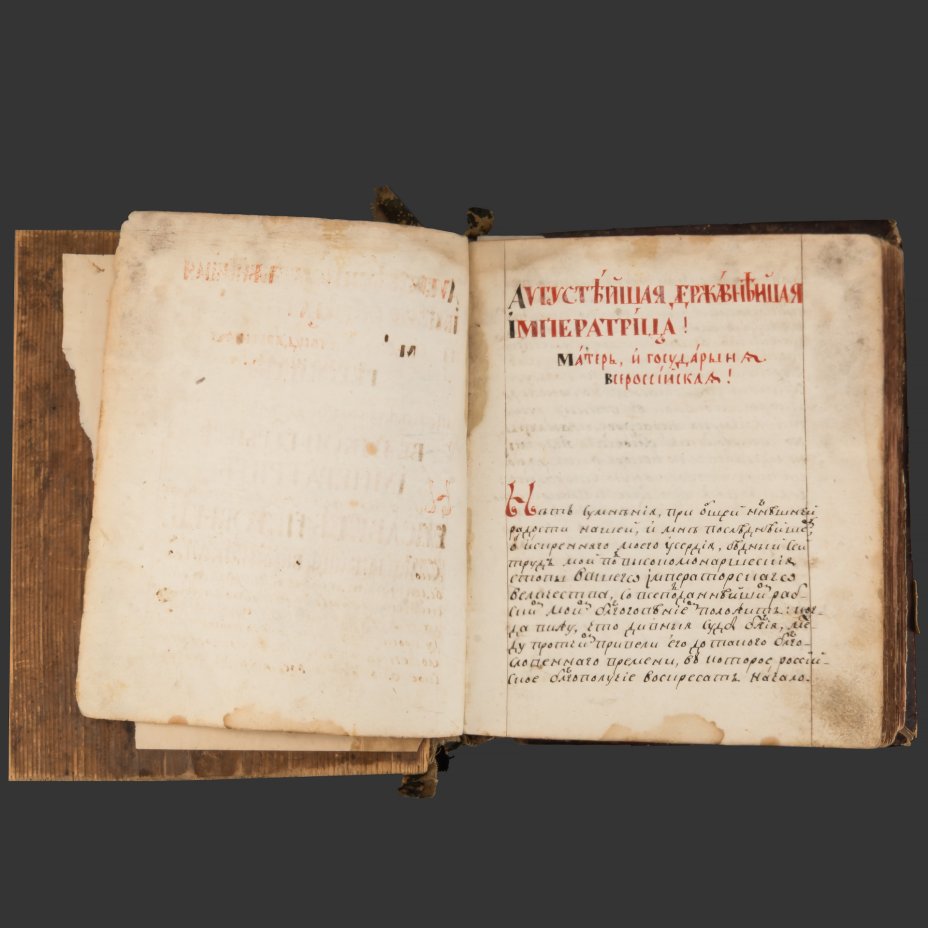 Аѵгꙋстѣ́йшая держа́внѣйшая
імператри́ца!
ма́терь, и госꙋда́рыня
всеросси́йская!
Нѣсть сумнѣнія, при общей нн҃ѣшнѣй
радости нашей, и мнѣ послѣднѣйшемꙋ,
ѿ искреннаго моего усердія, бѣдный сей
трудъ мой под высокомонаршескія
стопы вашего імператорскаго
величества, со всеподаннѣйшим раб-
ским моим благоговѣніем положить: ког-
да вижу, что дивныя судбы бж҃ія, ме-
ду протчим привели его до такого бл҃го-
словеннаго времени, въ которое россій-
ское бл҃гополучіе воскресать начало.